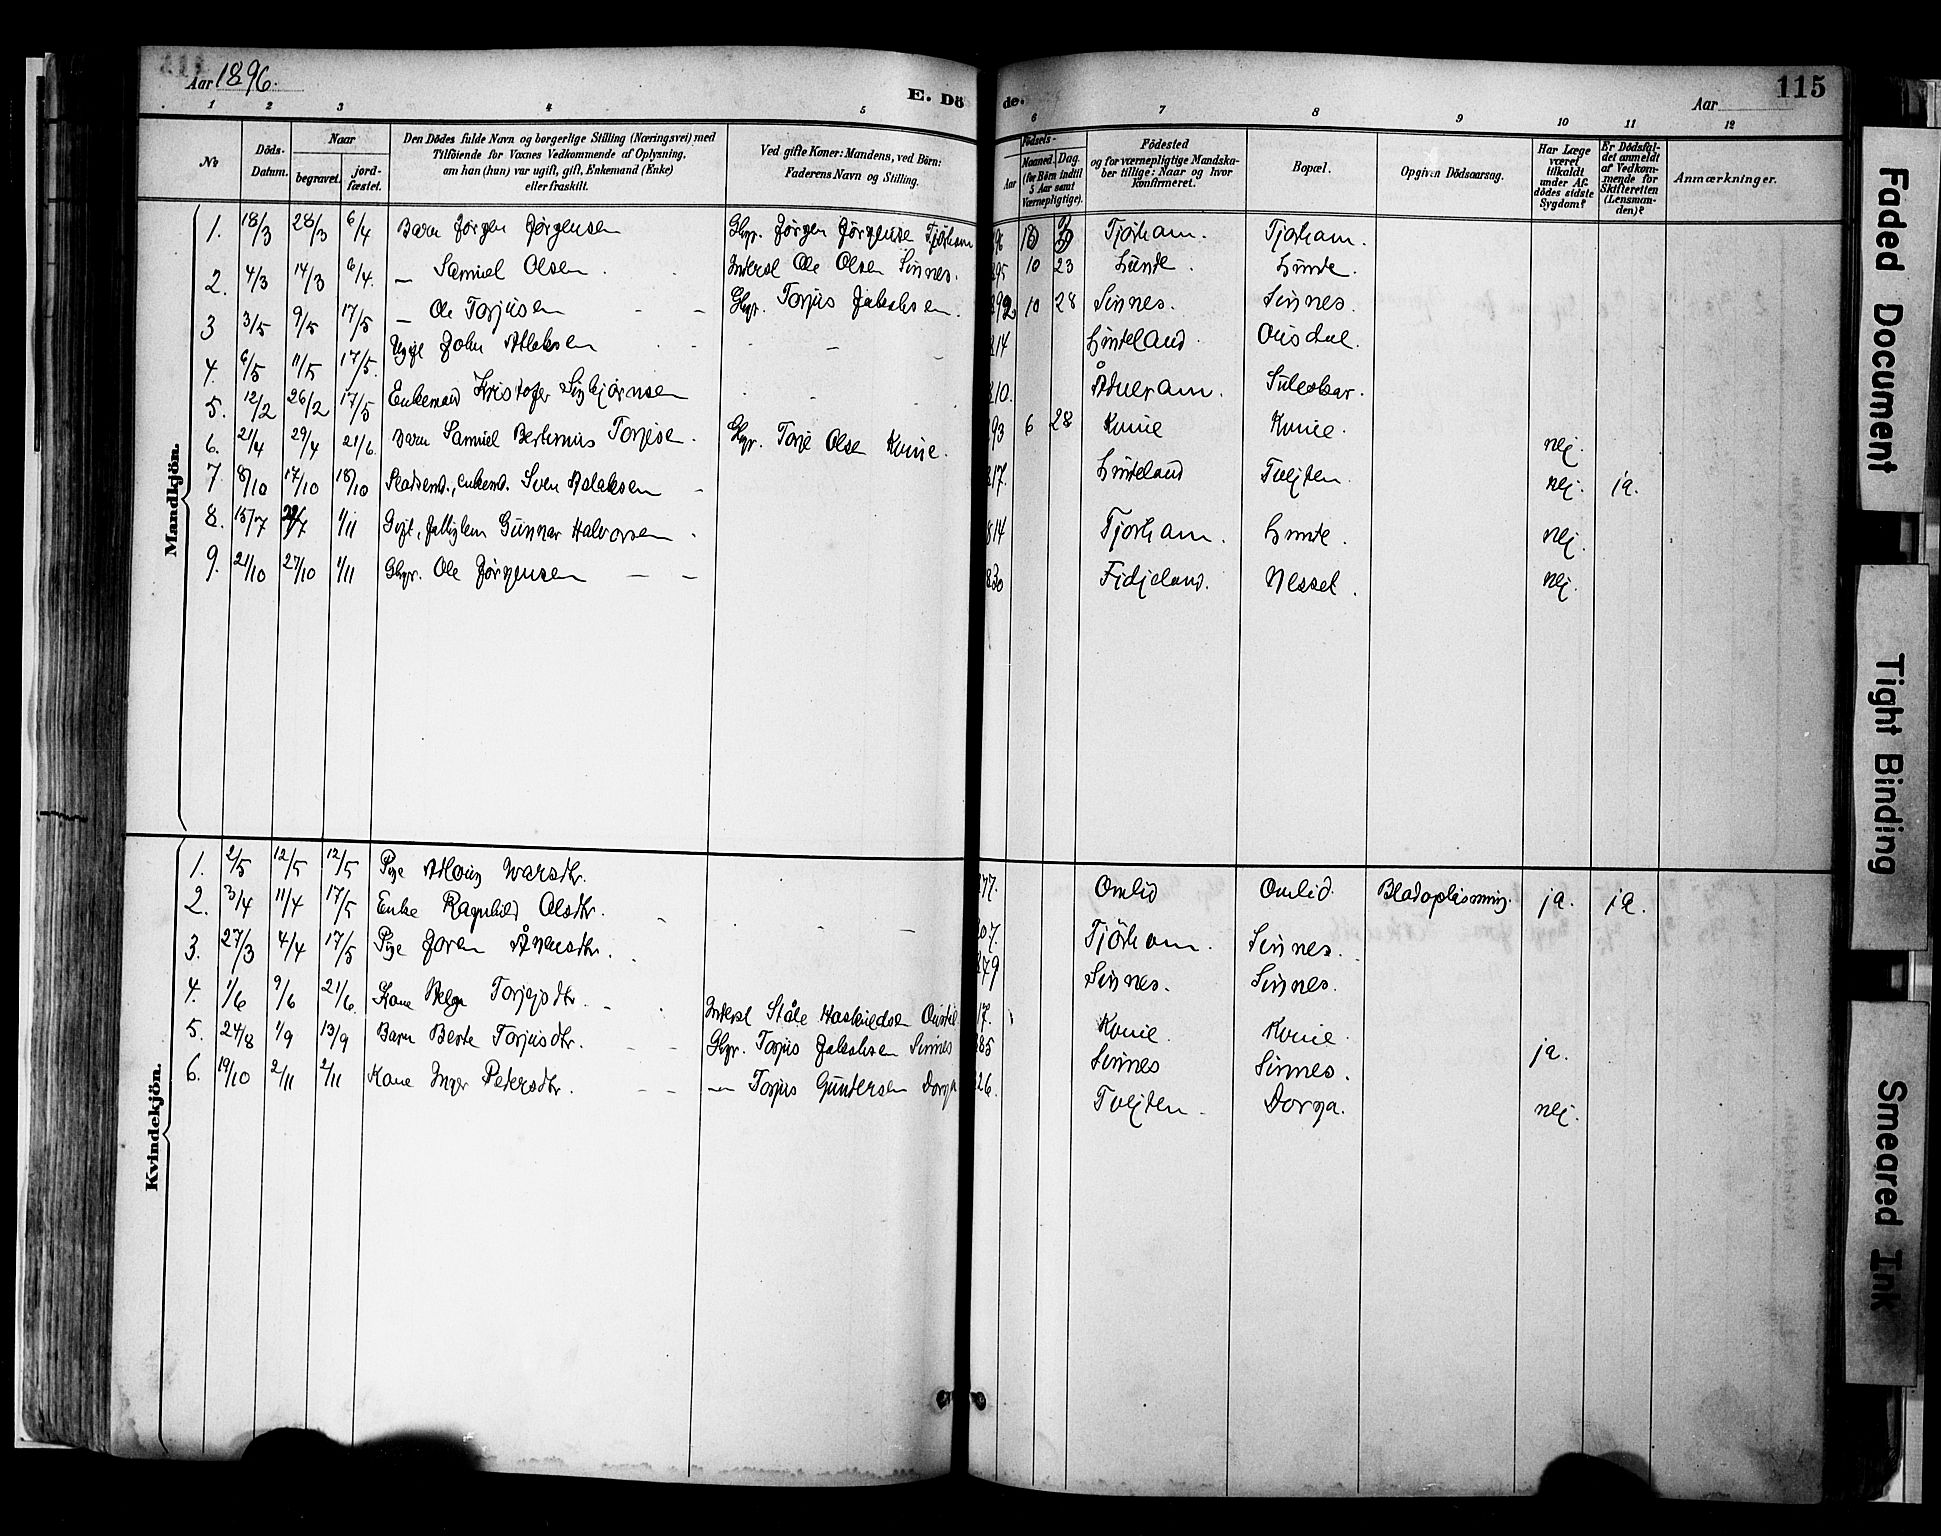 Aar 1896.
E. Dö
de.
Aar
115
1 2 3 4 5 6 7 8 9 10 11 12
No
Döds-Datum.
Naar
begravet.
jord-fæstet.
Den Dödes fulde Navn og borgerlige Stilling (Næringsvei) med
Tilföiende for Voxnes Vedkommende af Oplysning,
om han (hun) var ugift, gift, Enkemand (Enke)
eller fraskilt.
Ved gifte Koner: Mandens, ved Börn:
Faderens Navn og Stilling.
Födsels-
Aar
Maaned. Dag.
(for Börn indtil
5 Aar samt
Værnepligtige).
Födested
og for værnepligtige Mandska-
ber tillige: Naar og hvor
konfirmeret.
Bopæl.
Opgiven Dödsaarsag.
Har Læge
været
tilkaldt
under Af-
dödes sidste
Sygdom?
Er Dödsfal-
det anmeldt
af Vedkom-
mende for
Skifteretten
(Lensman-
den)?
Anmærkninger.
Mandkjön.
1. 18/3 28/3 6/4 Barn Jørgen Jørgensen Gbgr. Jørgen Jørgensen Tjörham 96 Tjörham. Tjorham.
2. 4/3 14/3 6/4. — Samuel Olsen. Inderst Ole Olsen Sinnes. 95 10 23 Lunde. Lunde.
3 3/5 9/5 17/5 — Ole Torjusen Gbgr. Torjus Jakobsen. 92 10 28 Sinnes. Sinnes.
4. 6/5 11/5 17/5. John Atlaksen 14 Linteland Ousdal.
5. 12/2 26/2 17/5 Enkemand Kristofer Sigbjørnsen 10. Ådneram. Suleskar.
6. 21/4 29/4 21/6 Barn Samuel Bertinius Torjesen. Gbgr. Torje Olsen Kvine. 93 6 28 Kvine Kvine. nej.
7. 8/10 17/10 18/10 Pladsemd., enkemd. Sven Aslaksen 817. Linteland Tvejten. nej. ja.
8. 15/7 /7 1/11 Gunnar Halvorsen. 814 Tjorham. Lunde. nej.
9. 21/10 27/10 1/11 Gbgr. Ole Jørgensen 830 Fidjeland. Nesset. nej.
Kvindekjön.
1. 2/5 12/5 12/5 Pige Ivarsdtr. 77. Omlid Omlid. Blodopløsning. ja. ja.
2. 3/4 11/4 17/5 Enke Ragnhild Olsdtr. 07. Tjörham. Sinnes.
3. 27/3 4/4 17/5 Pige Joren Ånensdtr. 879 Sinnes. Sinnes.
4. 1/6 9/6 21/6. Kone Helga Torjejsdtr. Inderst Ståle Haskuldsen 17. Kvine Kvine. ja.
5. 24/8 1/9 13/9 Barn Berte Torjusdtr. Gbgr. Torjus Jakobsen Sinnes 85 Sinnes Sinnes.
6. 19/10 2/11 2/11 Kone Inger Petersdtr. — Torjus Guntersen Dorga 26. Tvejten. Dorga. nej.
Faded Document
Tight Binding
Smeared Ink